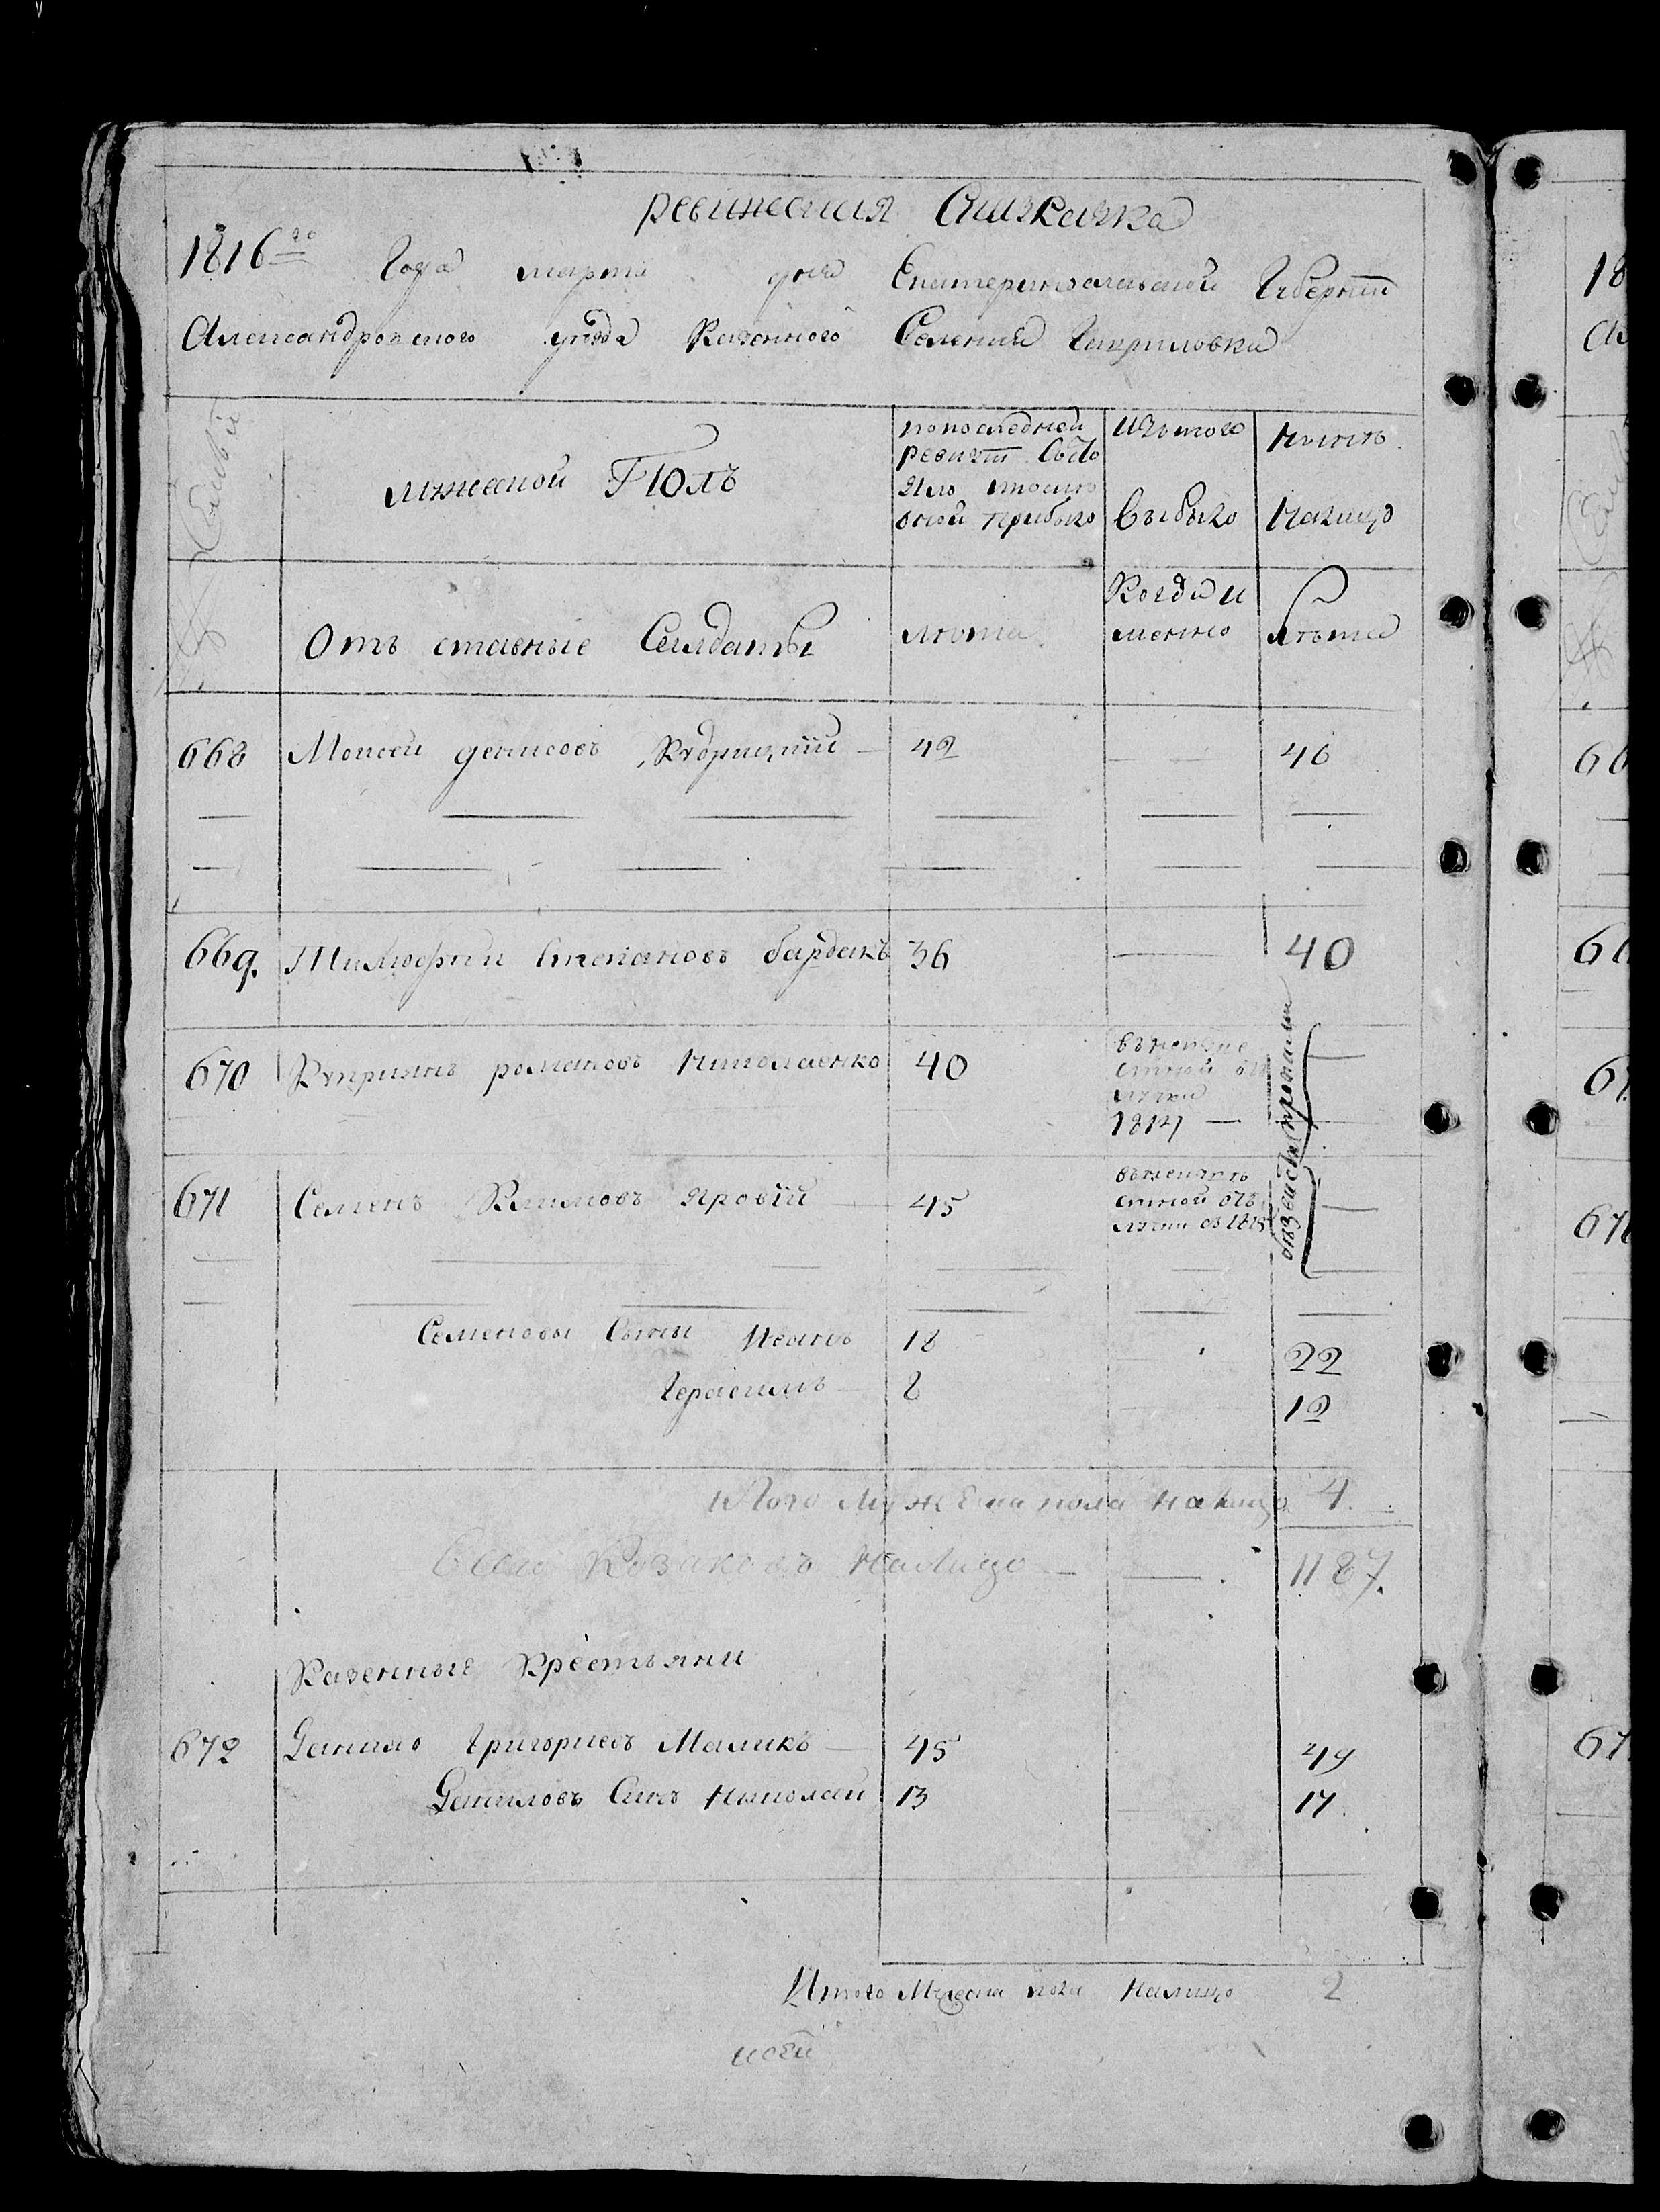 ревижская Сказка
1816го Года марта дня Екатеринославской Губернии
Александровского уезда Казенного Селения Гавриловки
Семьи
мужеской Полъ
попоследней
ревизии Состо
яло ипосле
оной прибыло
Изътого
выбыло
Нынѣ
Налицо
№
Отъ ставные Салдаты
лѣта
Когда и
менно
Лѣта
668 Моисей денисовъ Кудрицкий 42 46
669. Тимофеи Степановъ бардакъ 36 40
670 Куприянъ романовъ Николаенко 40
1814
671 Семенъ Климовъ Яровiй 45
Семеновы Сыны Иванъ 18 22
Герасимъ 8 12
Итого Мужеска пола налицо 4.
Всего Козаковъ Налицо 1187.
Казенные Крестьяни
672 Данило Григориевъ Маликъ 45 49
Даниловъ Синъ Николай 13 17.
Итого Мужеска пола налицо 2
18